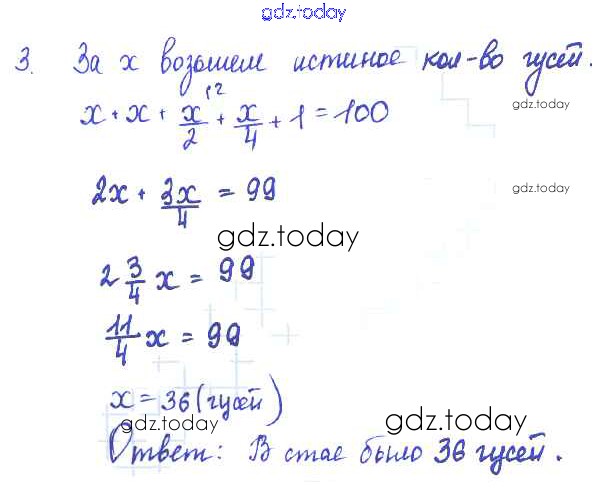 gdz.today
3. За x возьмем истиное кол-во гусей.
x + x + x/2 + x/4 + 1 = 100
gdz.today
2x + 3x/4 = 99
gdz.today
gdz.today
2 3/4 x = 99
11/4 x = 99
x = 36 (гусей)
gdz.today
gdz.today
Ответ: В стае было 36 гусей.